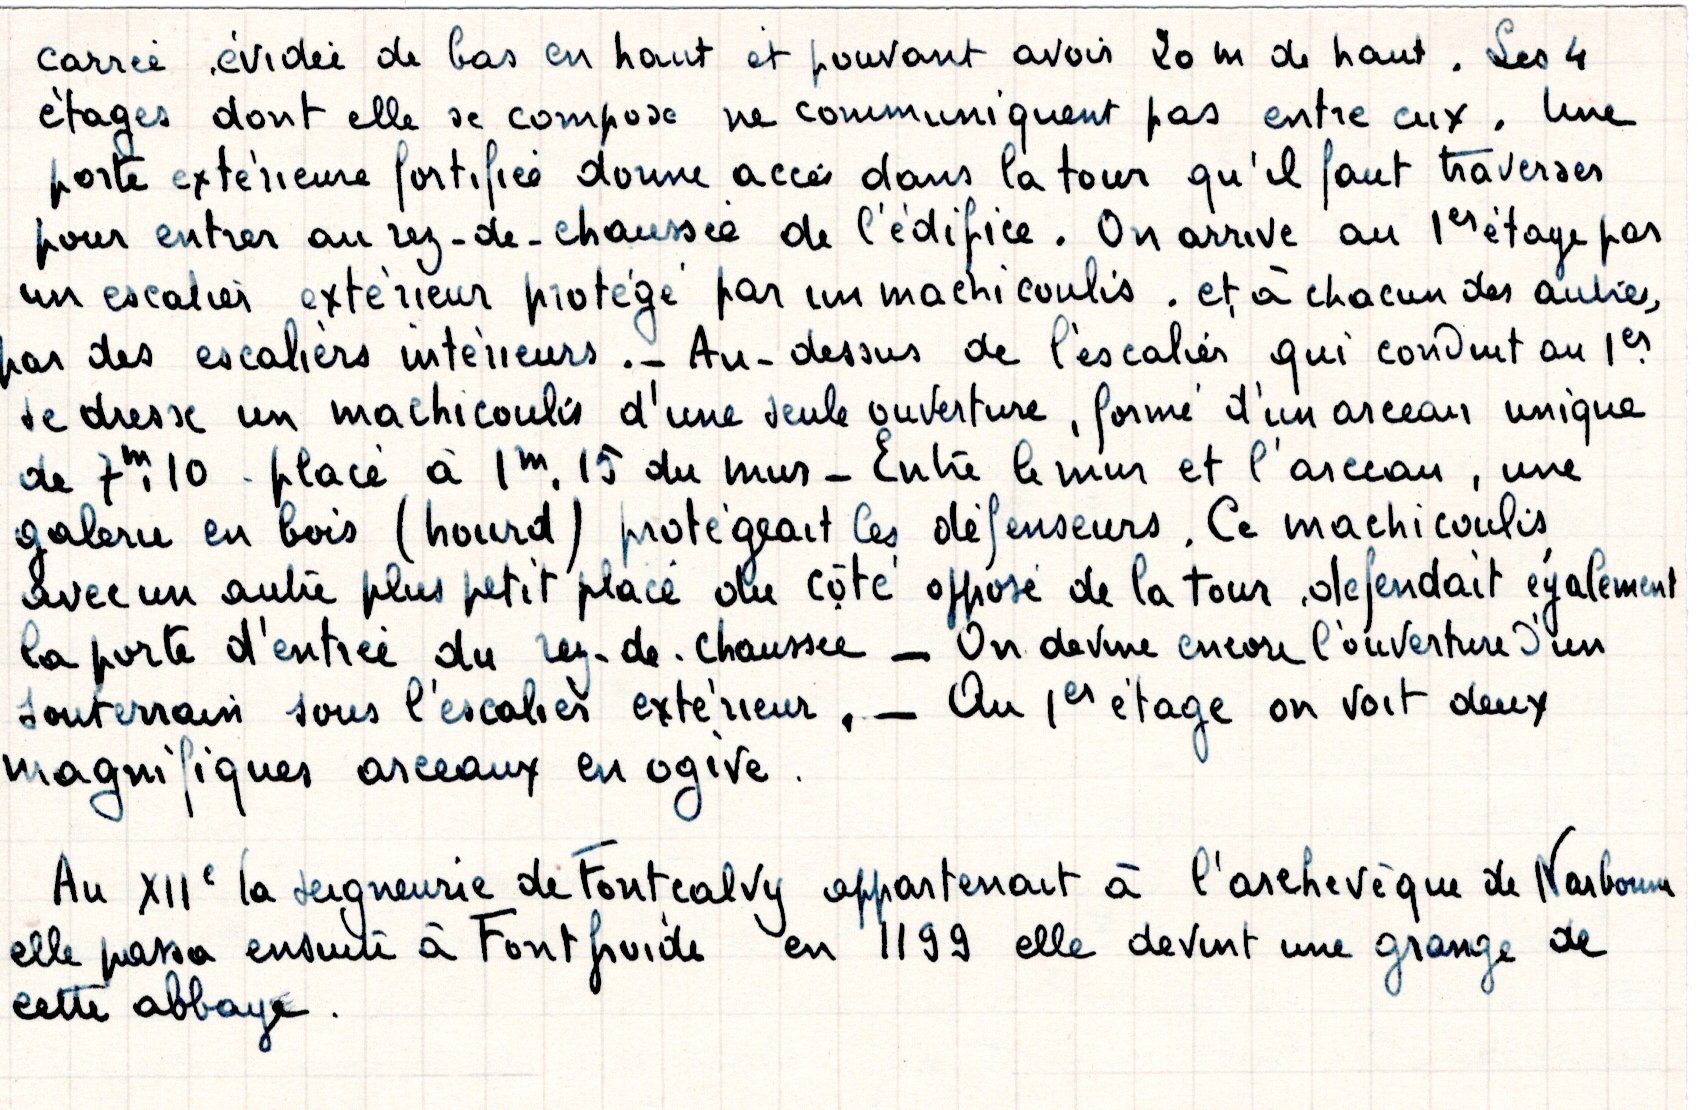 carrée évidée de bas en haut et pouvant avoir 20 m de haut. Les 4
étages dont elle se compose ne communiquent pas entre eux. Une
porte extérieure fortifiée donne accès dans la tour qu'il faut traverser
pour entrer au rez-de-chaussée de l'édifice. On arrive au 1er étage par
un escalier extérieur protégé par un machicoulis. et, à chacun des autres,
par des escaliers intérieurs. - Au-dessus de l'escalier qui conduit au 1er.
se dresse un machicoulis d'une seule ouverture, formé d'un arceau unique
de 7m,10 placé à 1m,15 du mur - Entre le mur et l'arceau, une
galerie en bois (hourd) protégeait les défenseurs. Ce machicoulis,
avec un autre plus petit placé du côté opposé de la tour, défendait également
la porte d'entrée du rez-de-chaussée - On devine encore l'ouverture d'un
souterrain sous l'escalier extérieur. - Au 1er étage on voit deux
magnifiques arceaux en ogive.
Au XIIe la seigneurie de Fontcalvy appartenait à l'archevêque de Narbonne
elle passa ensuite à Fontfroide en 1199 elle devint une grange de
cette abbaye.